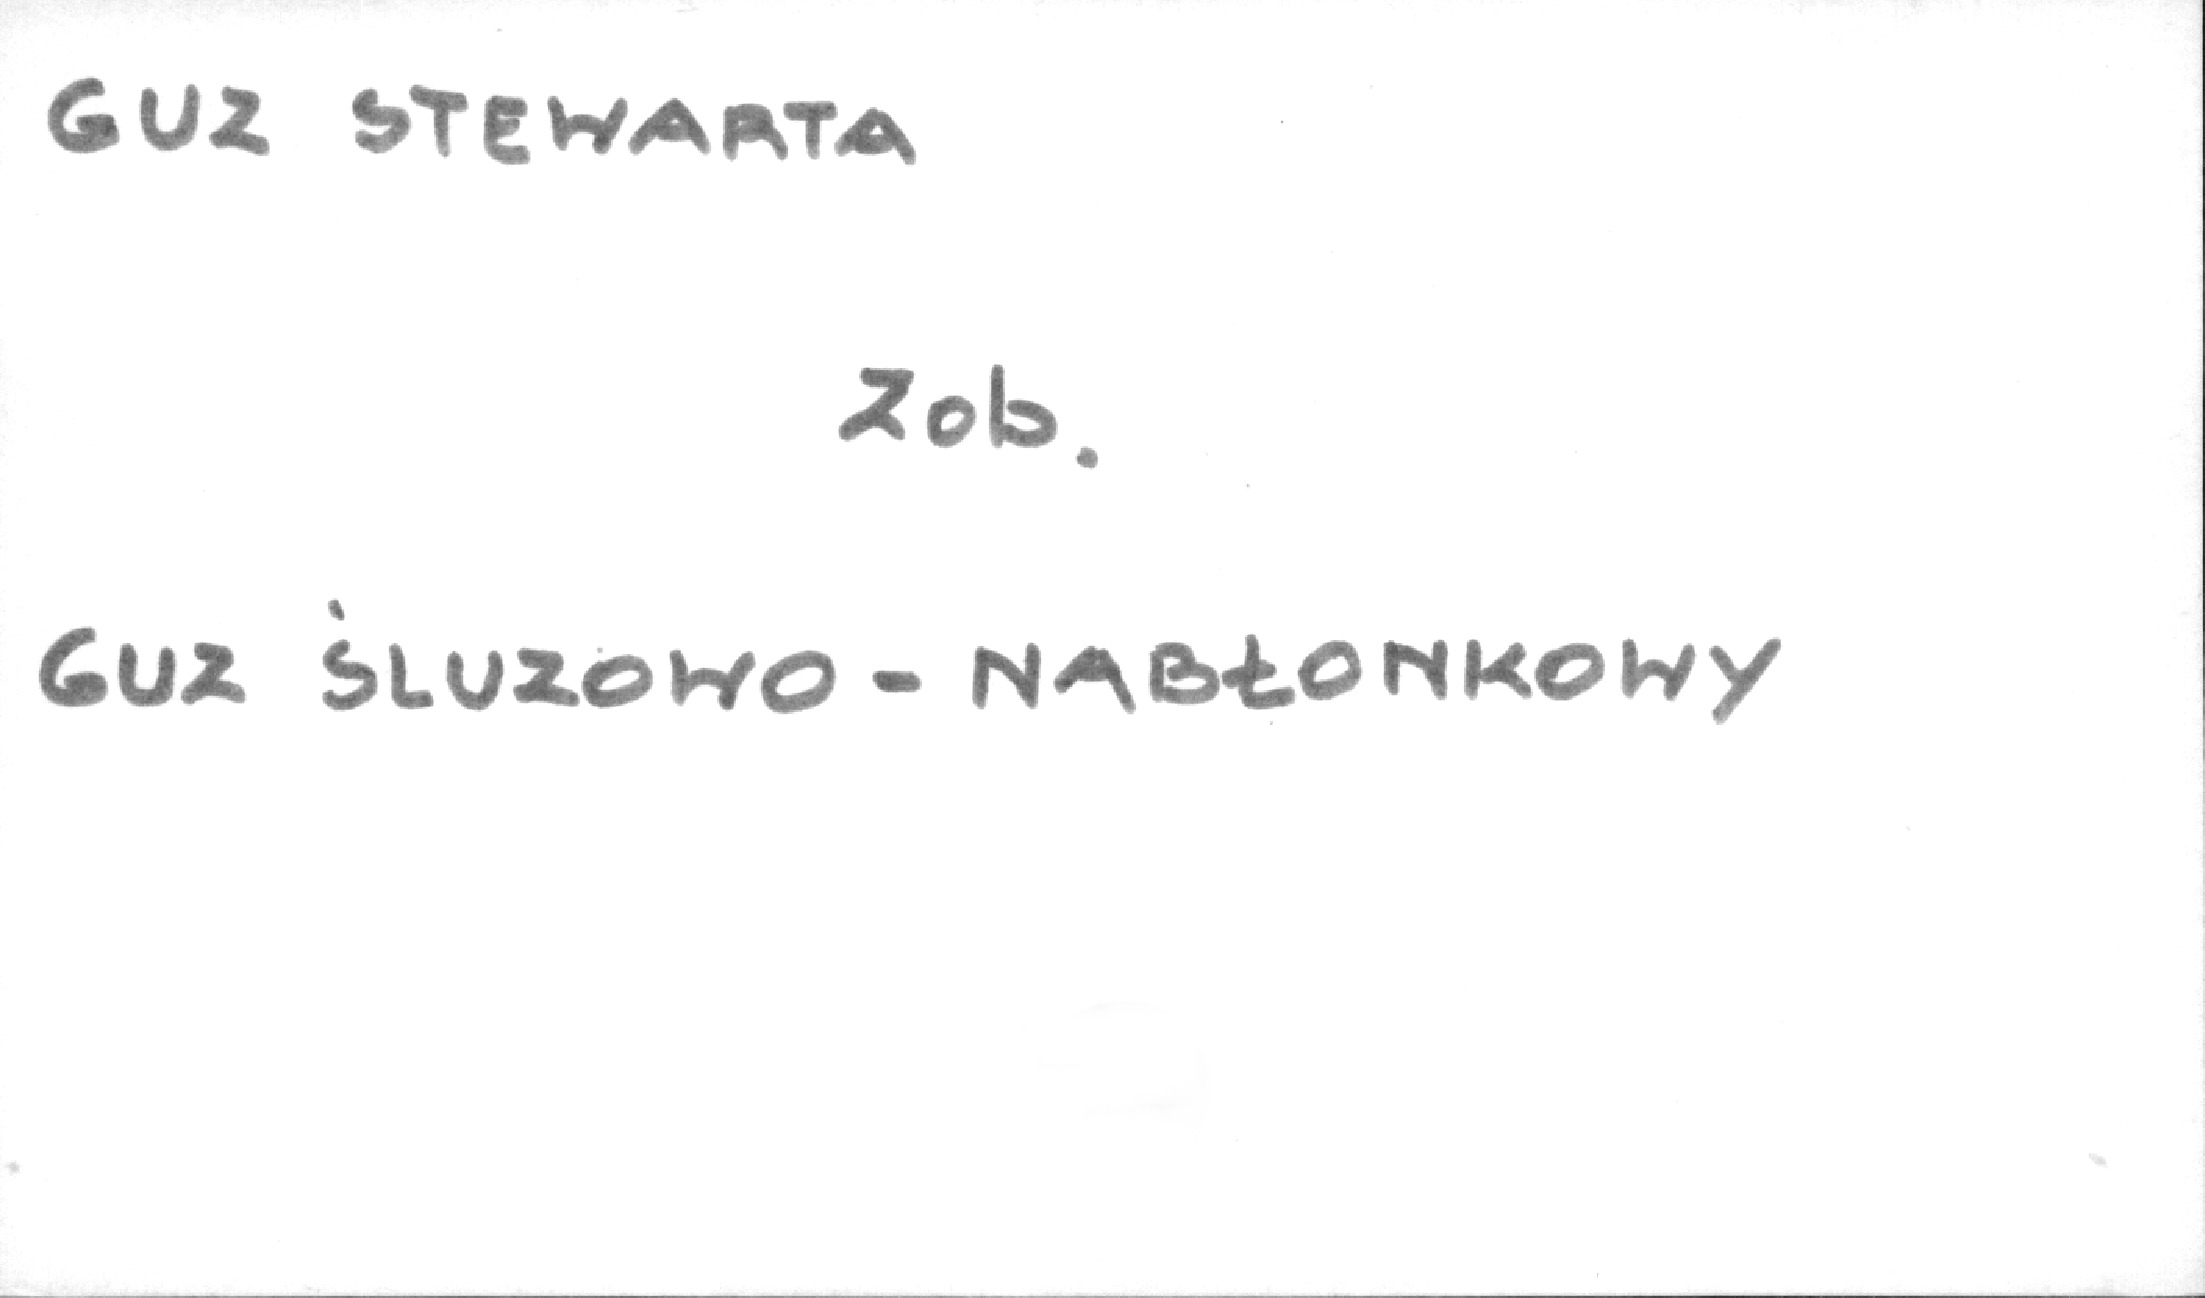 GUZ STEWARTA
Zob.
GUZ ŚLUZOWO - NABŁONKOWY